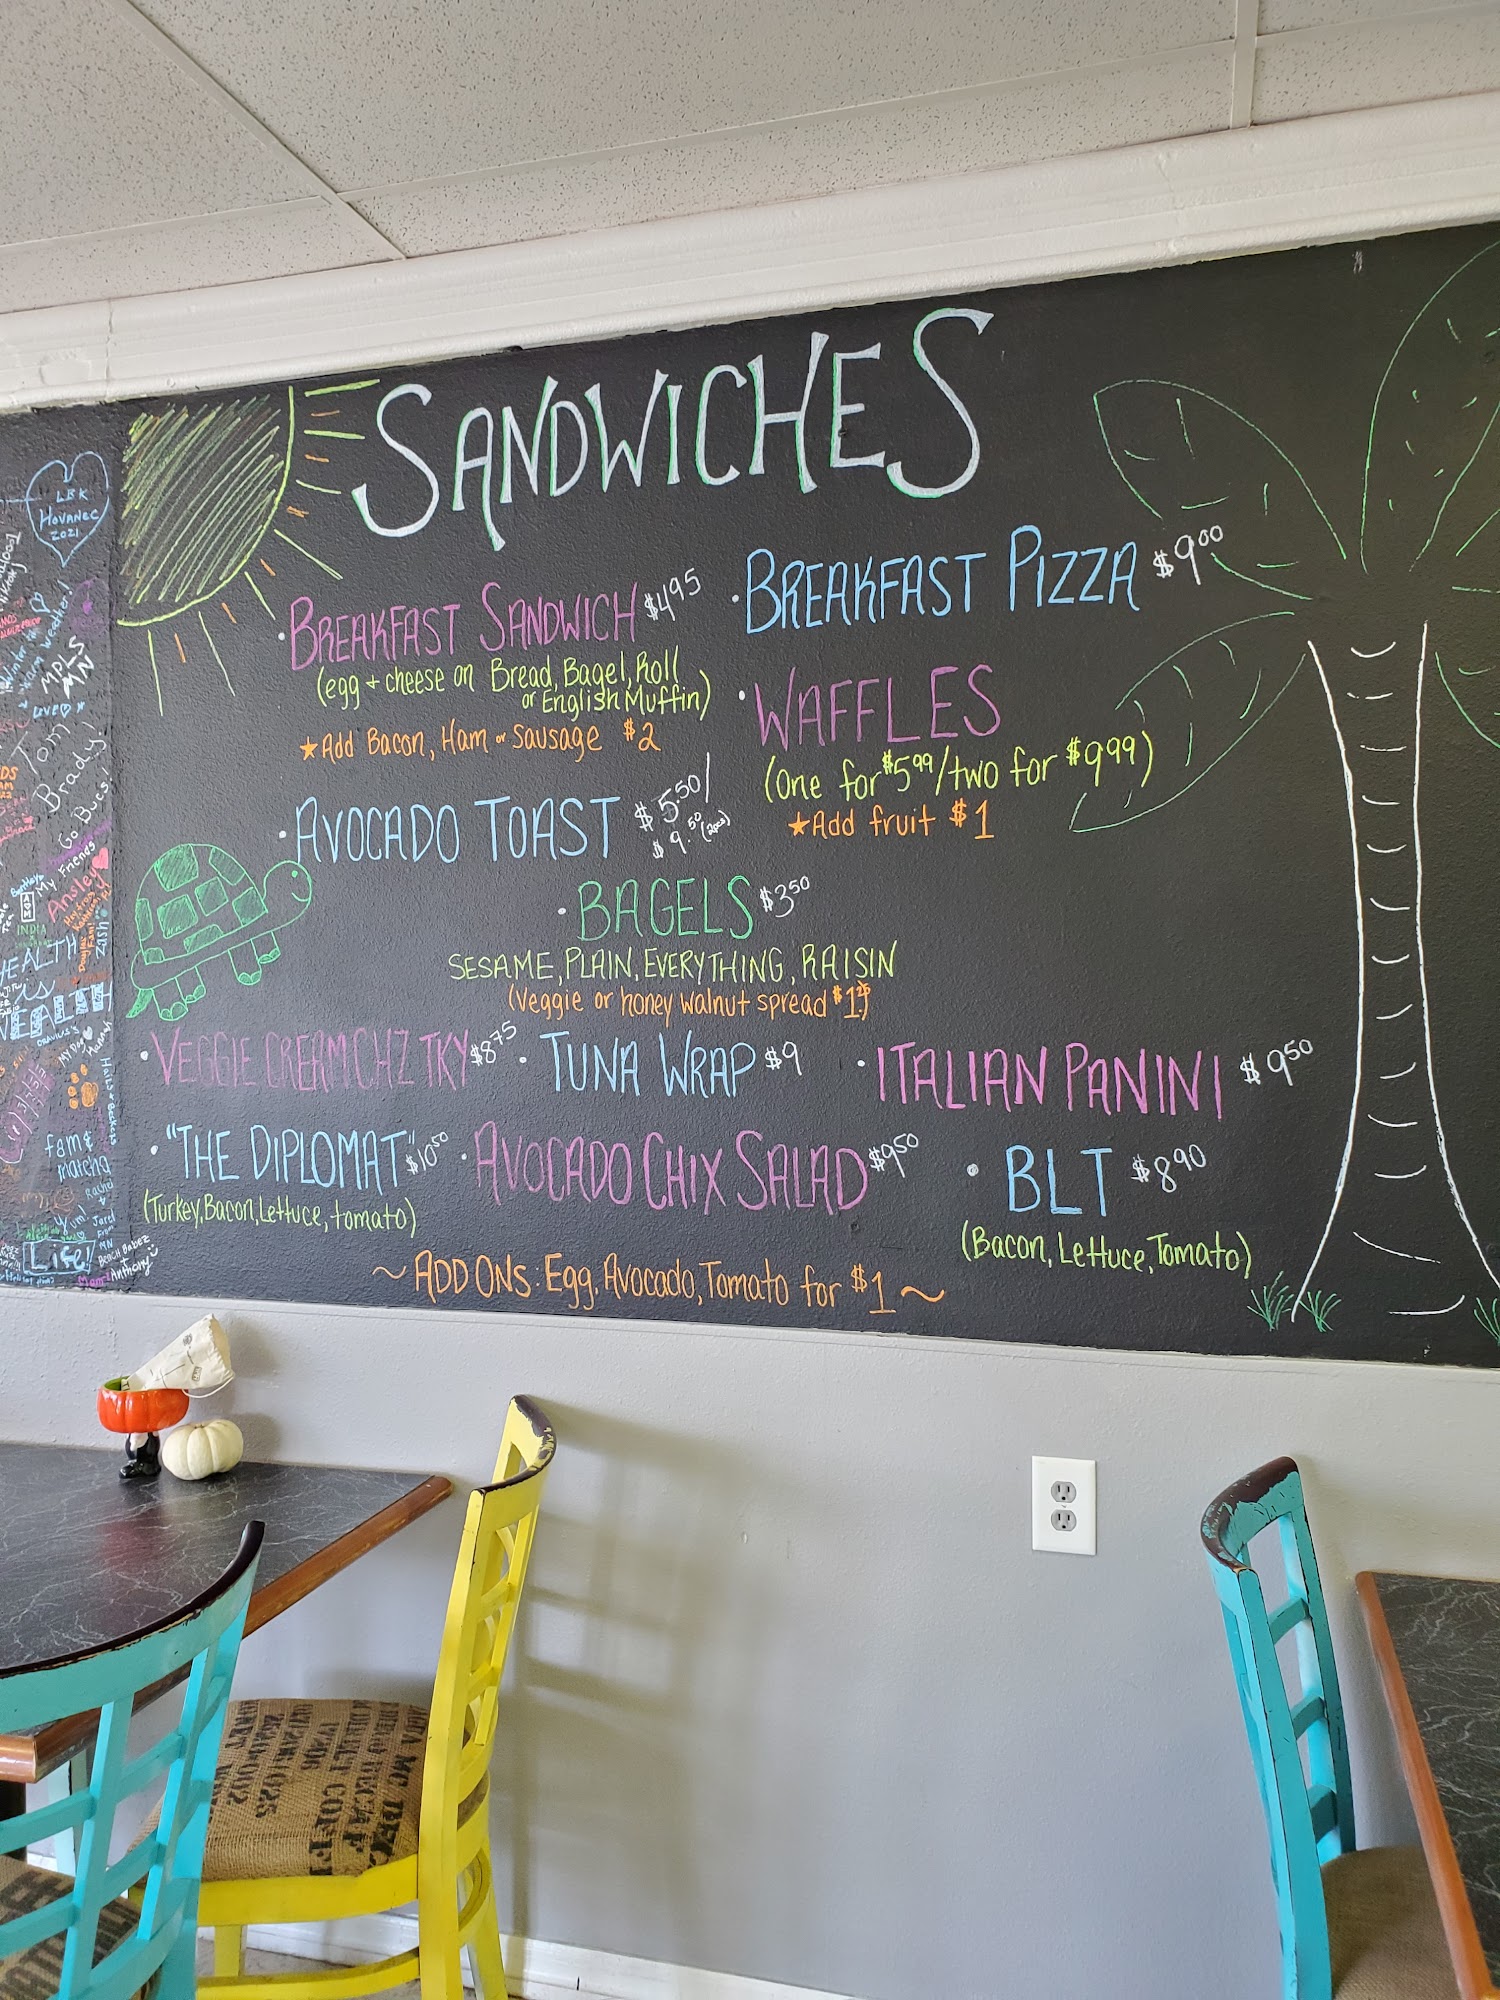 SANDWICHES
• BREAKFAST SANDWICH $4.95
(egg + cheese on Bread, Bagel, Roll
or English Muffin)
★ Add Bacon, Ham or Sausage $2
• AVOCADO TOAST $5.50/
$9.50 (2pcs)
• BREAKFAST PIZZA $9.00
• WAFFLES
(One for $5.99/two for $9.99)
★ Add fruit $1
• BAGELS $3.50
SESAME, PLAIN, EVERYTHING, RAISIN
(Veggie or honey walnut spread $1.25)
• VEGGIE CREAM CHZ TKY $8.75
• TUNA WRAP $9
• ITALIAN PANINI $9.50
• "THE DIPLOMAT" $10.50
(Turkey, Bacon, Lettuce, tomato)
• AVOCADO CHIX SALAD $9.50
• BLT $8.90
(Bacon, Lettuce, Tomato)
~ ADD ONS: Egg, Avocado, Tomato for $1 ~
LBK
HOVANEC
2021
Warm Weather!
MPLS
MN
LOVE
Tom
Brady!
Go Bucs!
My Friends
Ansley
INDIA
HEALTH
IS
WEALTH
fam &
matcha
Rachel
Yum!
Jarel
From
MN
Life!
BEACH Babez
Anthony